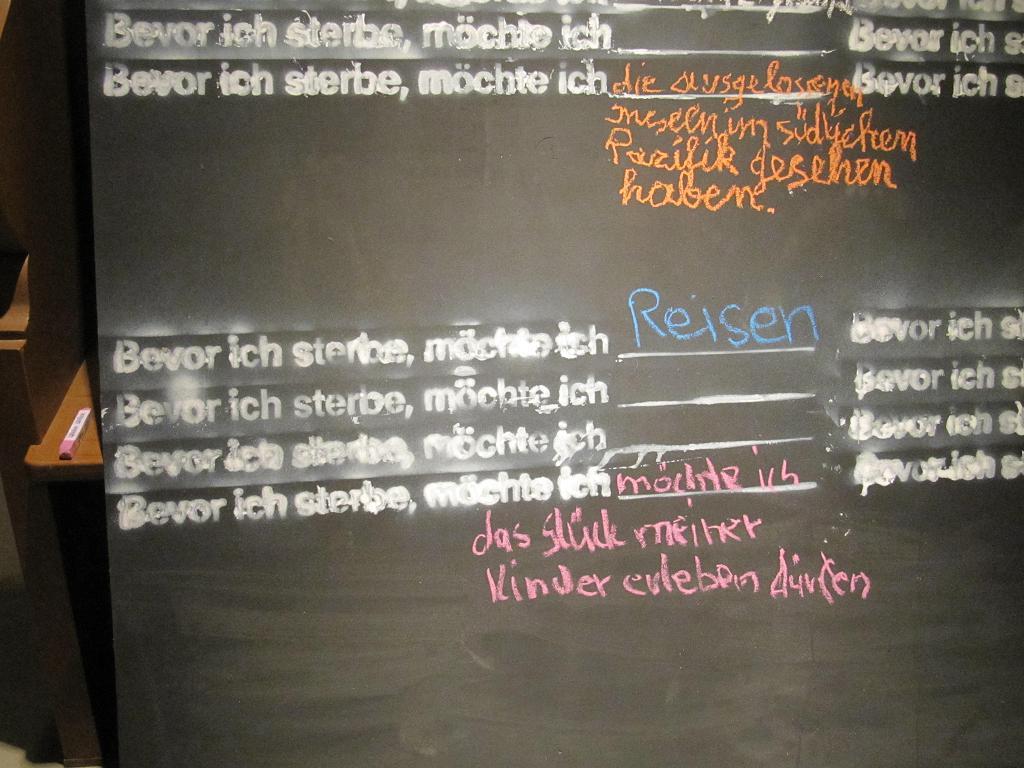 Bevor ich sterbe, möchte ich Bevor ich s
Bevor ich sterbe, möchte ich die ausgelossenen Bevor ich s
Inseln im südlichen
Pazifik gesehen
haben.
Bevor ich sterbe, möchte ich Reisen Bevor ich s
Bevor ich sterbe, möchte ich Bevor ich s
Bevor ich sterbe, möchte ich Bevor ich s
Bevor ich sterbe, möchte ich möchte ich Bevor ich s
das Glück meiner
Kinder erleben dürfen